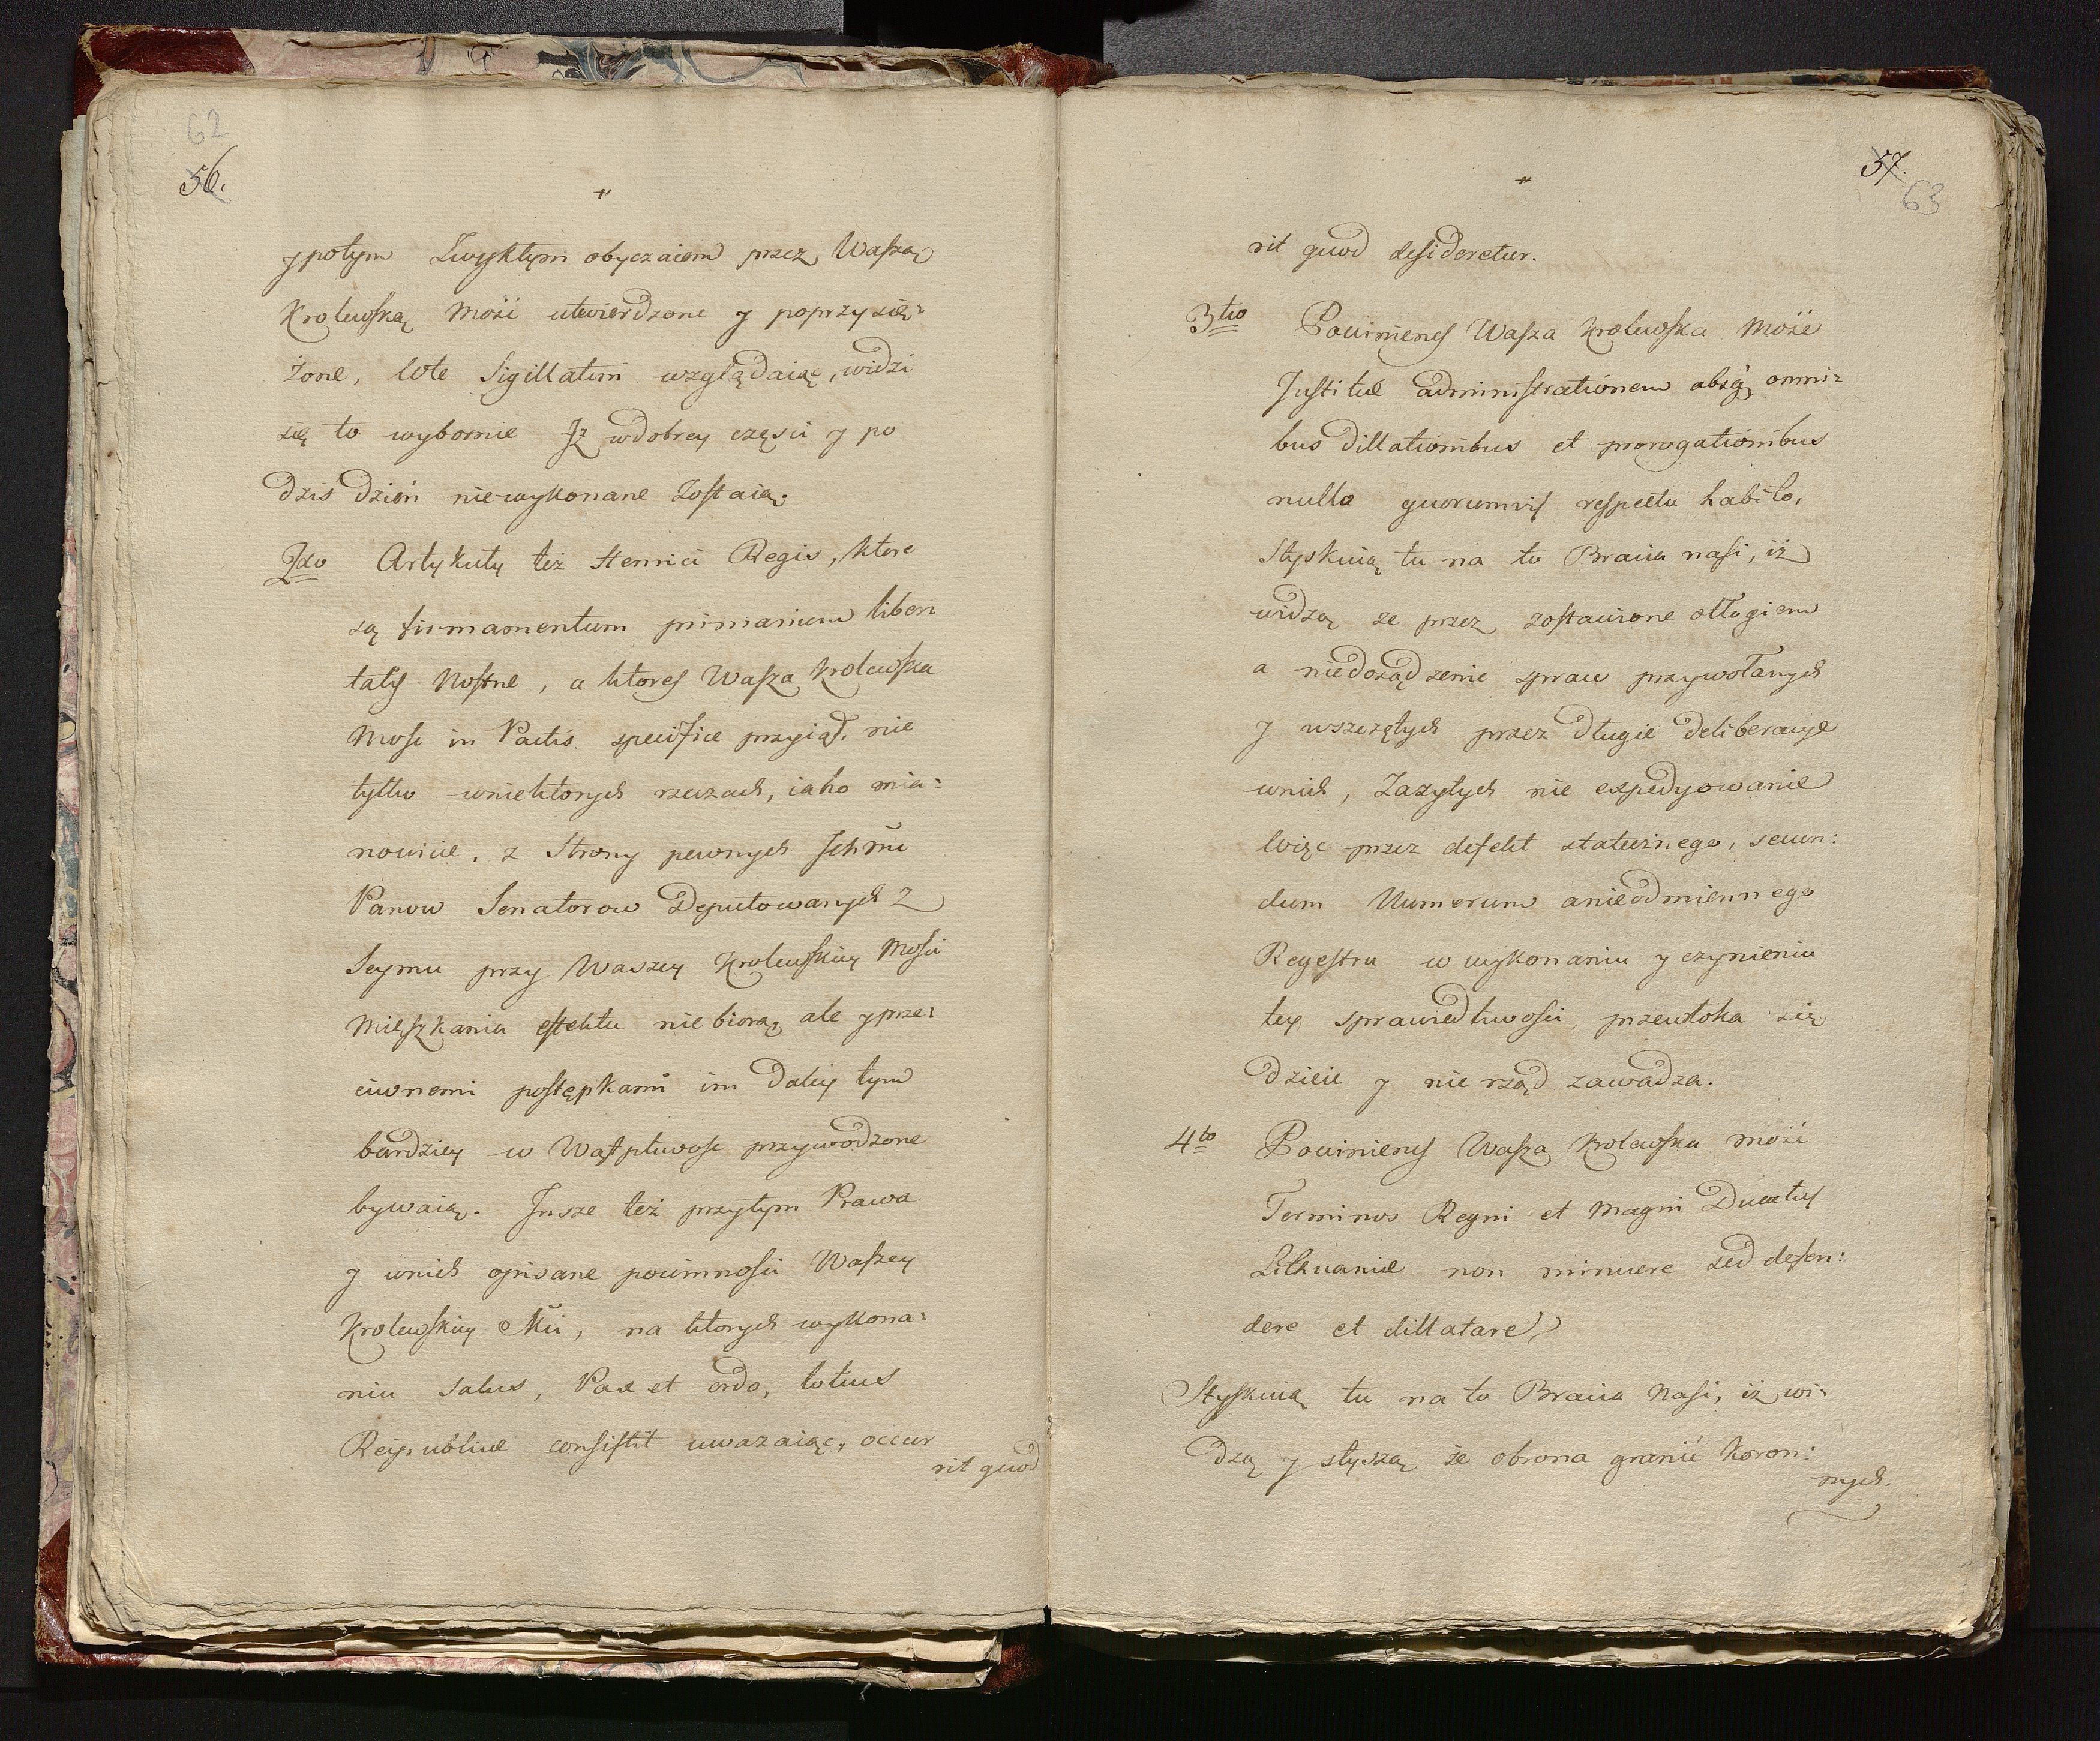 62
56.
ypotym Zwykłym obyczaiem przez Waszą
Krolewską Mość utwierdzone y poprzysię:
żone, lote Sigillatim wzglądaiąc, widzi
się to wybornie Jż wdobrey częsci y po
dzis dzień niewykonane Zostaią.
2do Artykuły też Henrici Regis, ktore
są firmamentum primarium liber
tatis Nostræ, a ktores Wasza Krolewska
Mosc in Pactis specifice przyiął, nie
tylko wniektorych rzeczach, iako mia:
nowicie, z Strony pewnych Jchmci
Panow Senatorow Deputowanych z
Seymu przy Waszey Krolewskiey Mosci
Mieszkania effektu nie biorą, ale y prze:
ciwnemi postępkami im daley tym
bardziey w Wątpliwosc przywodzone
bywaią. Jnsze też przytym Prawa
y wnich opisane powinnosci Waszey
Krolewskiey Mci, na ktorych wykona:
niu salus, Pax et ordo, totius
Reipublicæ consistit uwazaiąc, occur
rit quod
57.
63
rit quod desideretur.
3tio Powinienes Wasza Krolewska Mość
Justitiæ administrationem absq, omni:
bus dillationibus et prorogationibus
nullo quorumvis respectu habito,
Styskuią tu na to Bracia nasi, iż
widzą ze przez zostawione odłogiem
a niedosądzenie spraw przywołanych
y wszczętych przez długie deliberacye
wnich, Zazytych nie expedyowanie
lwięc przez defekt statecznego, secun:
dum Numerum anieodmiennego
Regestru w wykonaniu y czynieniu
tey sprawiedliwosci, przewłoka się
dzieie y nie rząd zawadza.
4to Powinienes Wasza Krolewska mość
Terminos Regni et Magni Ducatus
Lithuaniæ non minuere sed defen:
dere et dillatare,
Styskuią tu na to Bracia Nasi, iż wi:
dzą y styszą że obrona granic koron:
nych.